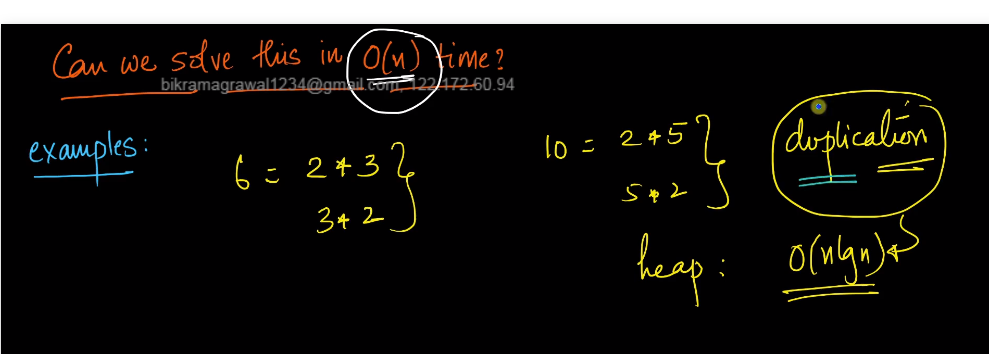 Can we solve this in O(n) time?
bikramagrawal1234@gmail.com, 122.172.60.94
examples:
6 = 2 * 3
3 * 2
10 = 2 * 5
5 * 2
duplication
heap : O(n lg n)